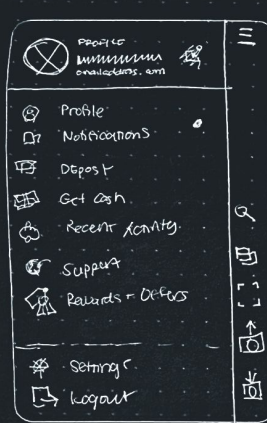 PROFILE
emailaddress.com
Profile
Notifications
Deposit
Get cash
Recent Activity
Support
Rewards + Offers
Settings
Logout